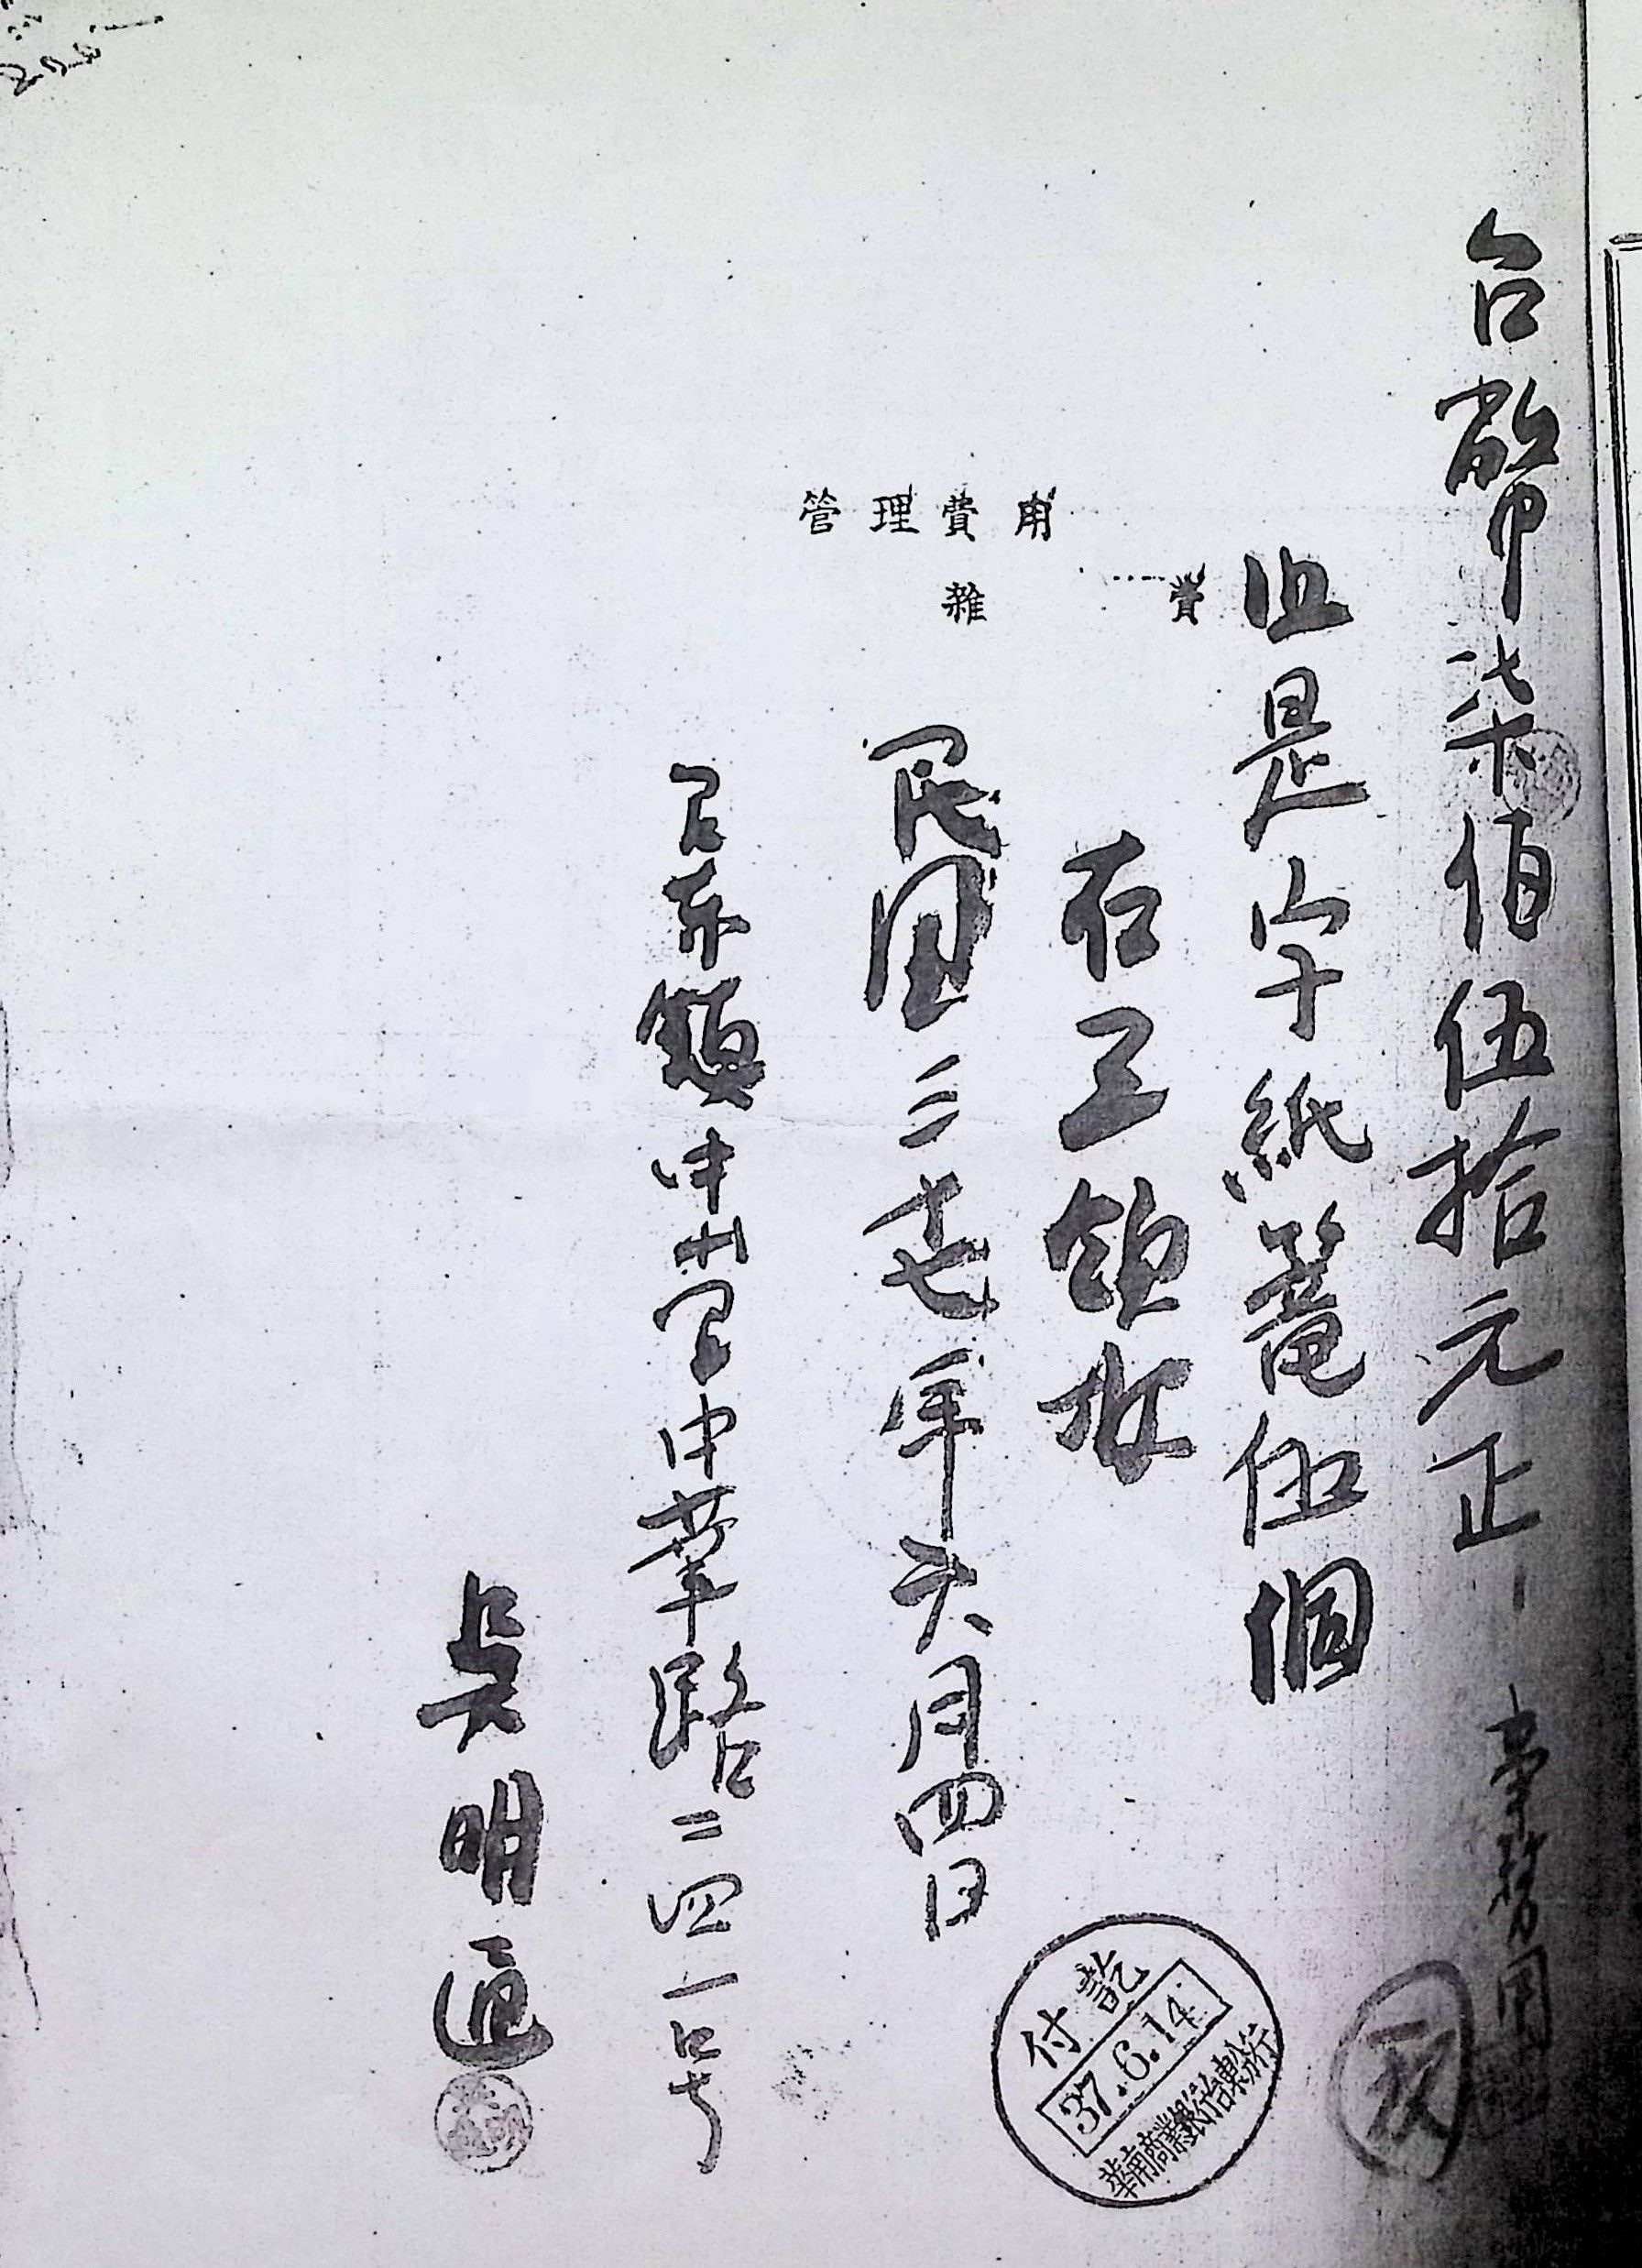 台幣柒佰伍拾元正
事務用
但是字紙篭伍個
右正領收
管理費用
雜費
民国三十七年六月四日
台東鎮中華里中華路二四一号
吳明通
付訖
37.6.14
華南商業銀行台東分行